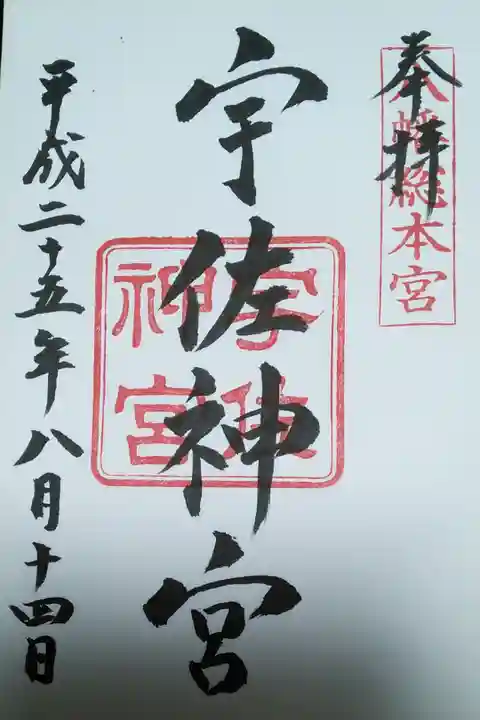 奉拝
八幡総本宮
宇佐神宮
宇佐神宮
平成二十五年八月十四日